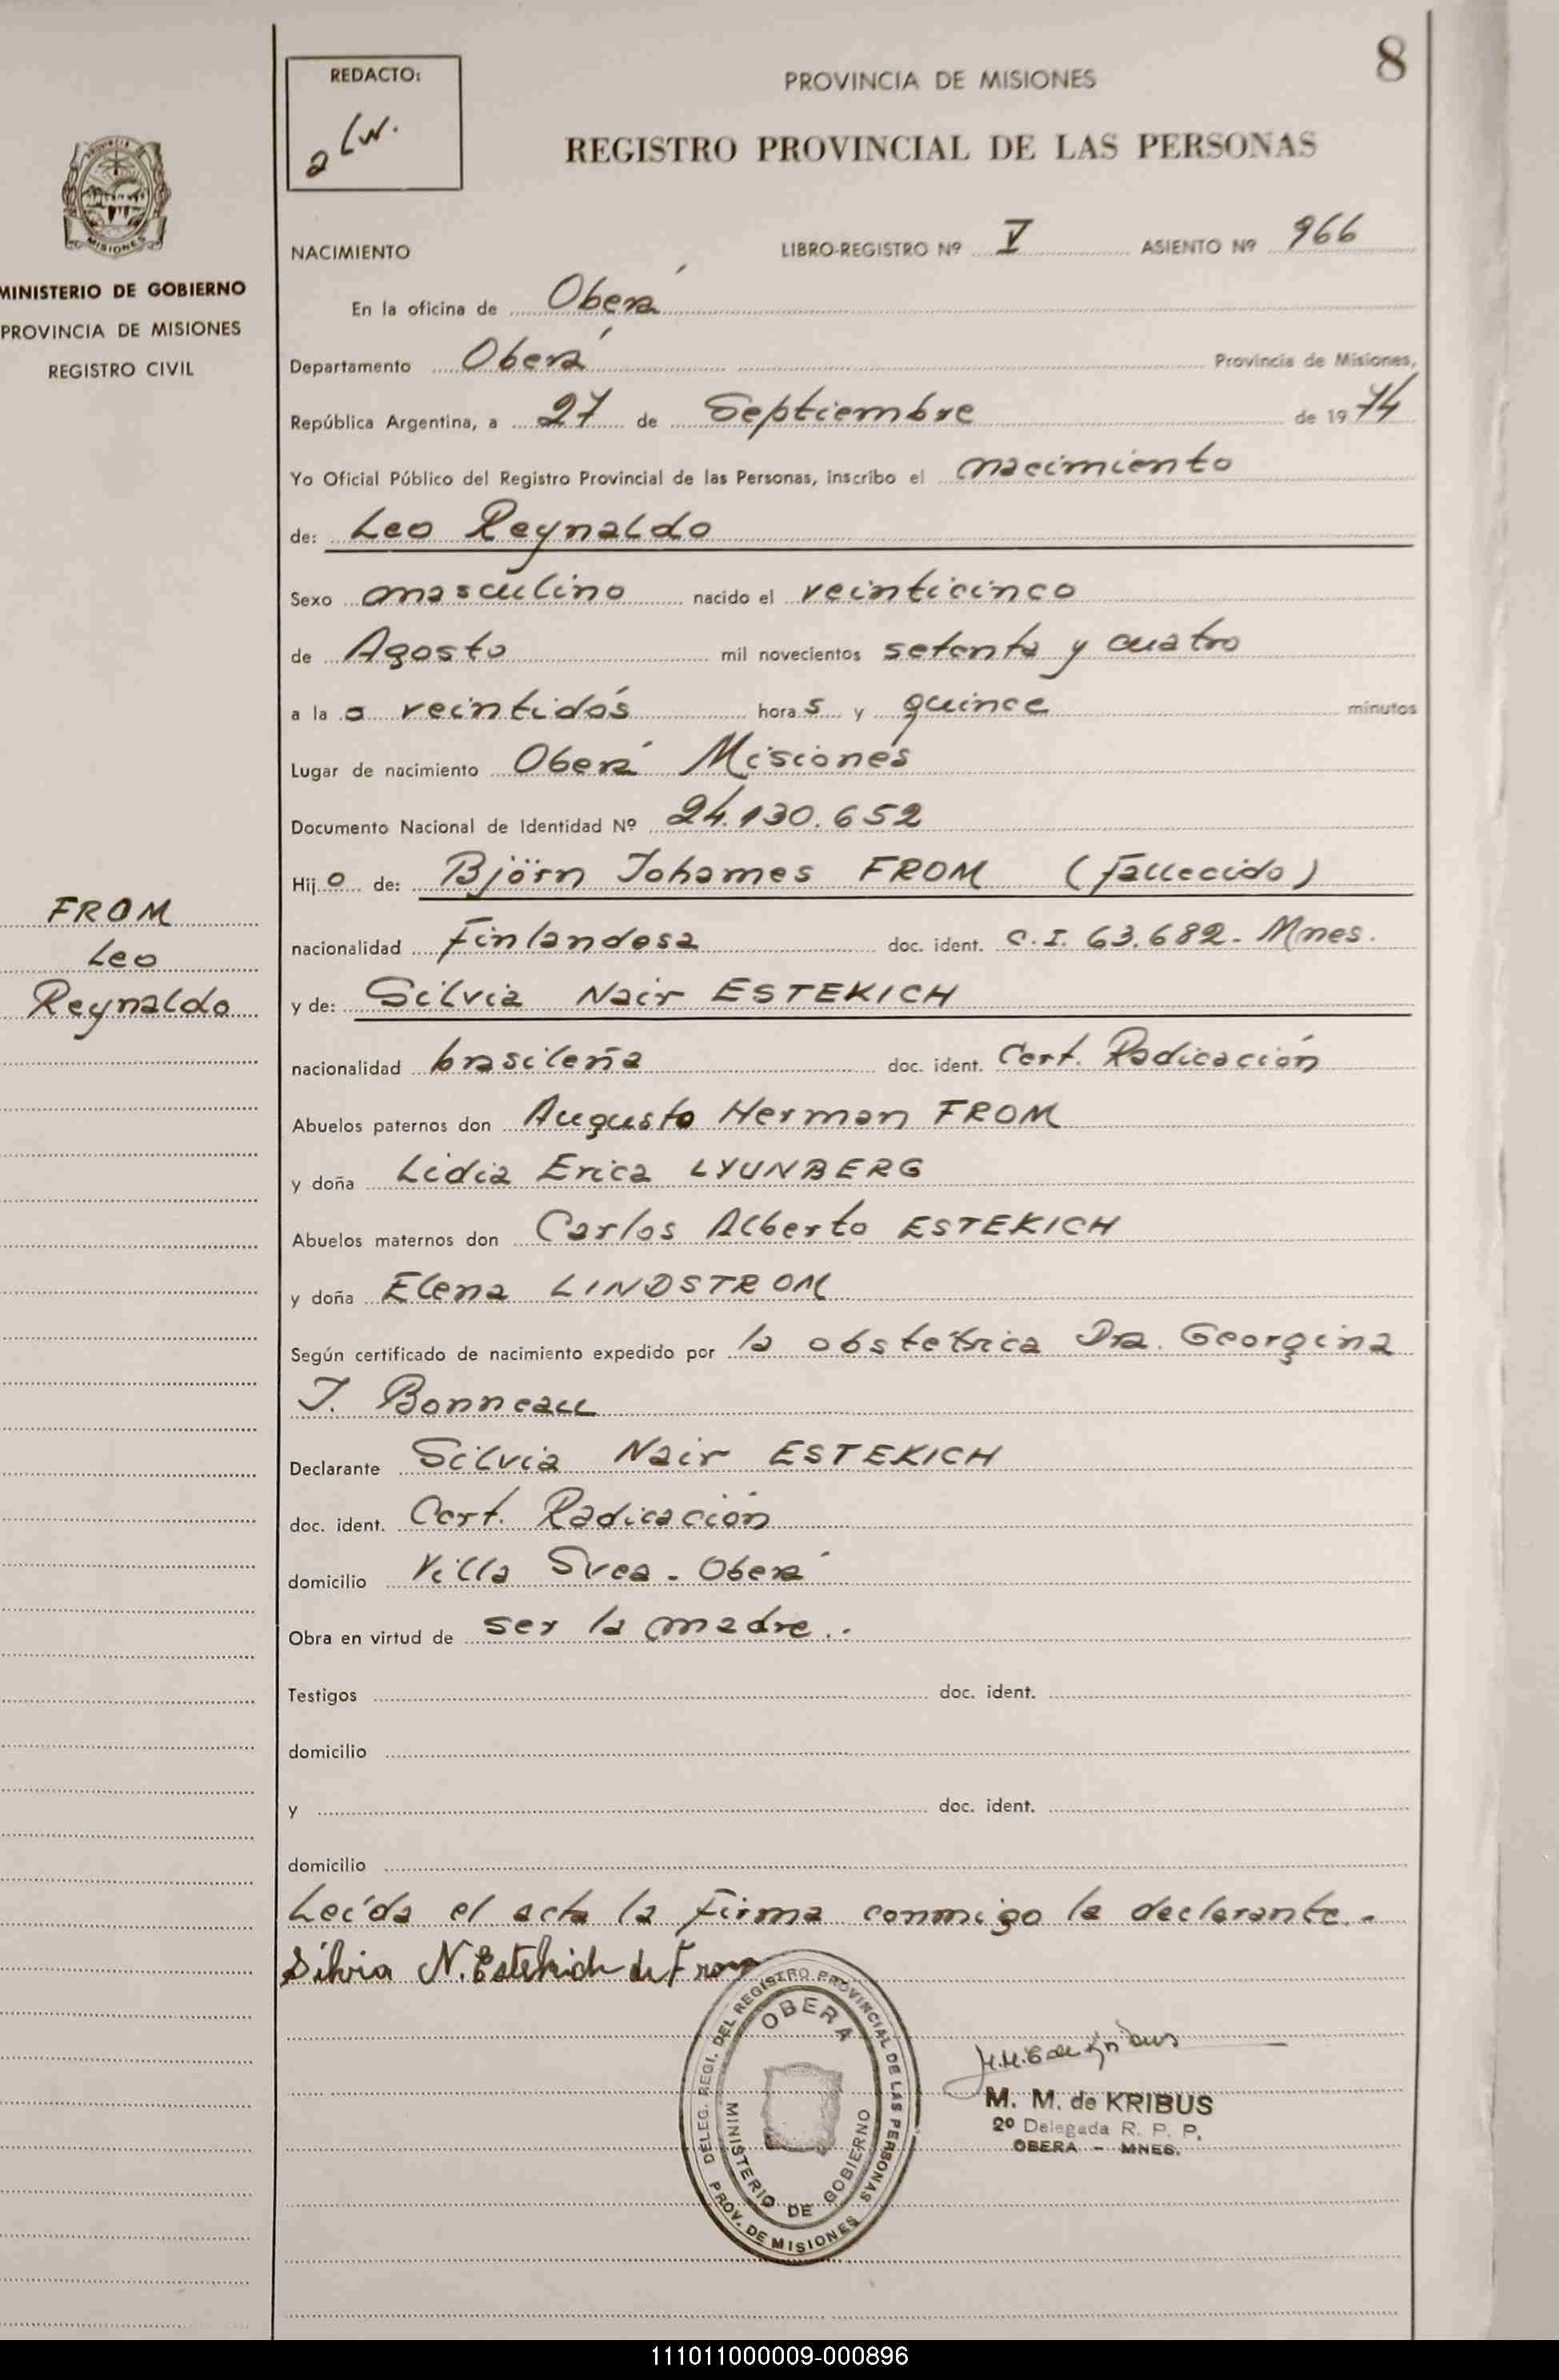 8
REDACTO:
PROVINCIA DE MISIONES
REGISTRO PROVINCIAL DE LAS PERSONAS
MISIONES
MINISTERIO DE GOBIERNO
PROVINCIA DE MISIONES
REGISTRO CIVIL
NACIMIENTO LIBRO-REGISTRO Nº V ASIENTO Nº 966
En la oficina de Oberá
Departamento Oberá Provincia de Misiones,
República Argentina, a 27 de Septiembre de 1974
Yo Oficial Público del Registro Provincial de las Personas, inscribo el nacimiento
de: Leo Reynaldo
Sexo masculino nacido el veinticinco
de Agosto mil novecientos setenta y cuatro
a la s veintidós horas y quince minutos
Lugar de nacimiento Oberá Misiones
Documento Nacional de Identidad Nº 24.130.652
Hijo de: Björn Johames FROM (Fallecido)
nacionalidad Finlandesa doc. ident. C.I. 63.682- Mnes.
y de: Silvia Nair ESTEKICH
nacionalidad brasileña doc. ident. Cert. Radicación
Abuelos paternos don Augusto Herman FROM
y doña Lidia Erica LYUNBERG
Abuelos maternos don Carlos Alberto ESTEKICH
y doña Elena LINDSTROM
Según certificado de nacimiento expedido por la obstetrica Dra. Georgina
J. Bonneau
Declarante Silvia Nair ESTEKICH
doc. ident. Cert. Radicación
domicilio Villa Svea - Oberá
Obra en virtud de ser la madre..
Testigos doc. ident.
domicilio
y doc. ident.
domicilio
Leída el acta la firma conmigo la declarante.-
Silvia N. Estekich de From
FROM
Leo
Reynaldo
DELEG. REGI. DEL REGISTRO PROVINCIAL DE LAS PERSONAS
OBERA
MINISTERIO DE GOBIERNO
PROV. DE MISIONES
M. M. de KRIBUS
2º Delegada R. P. P.
OBERA - MNES.
111011000009-000896